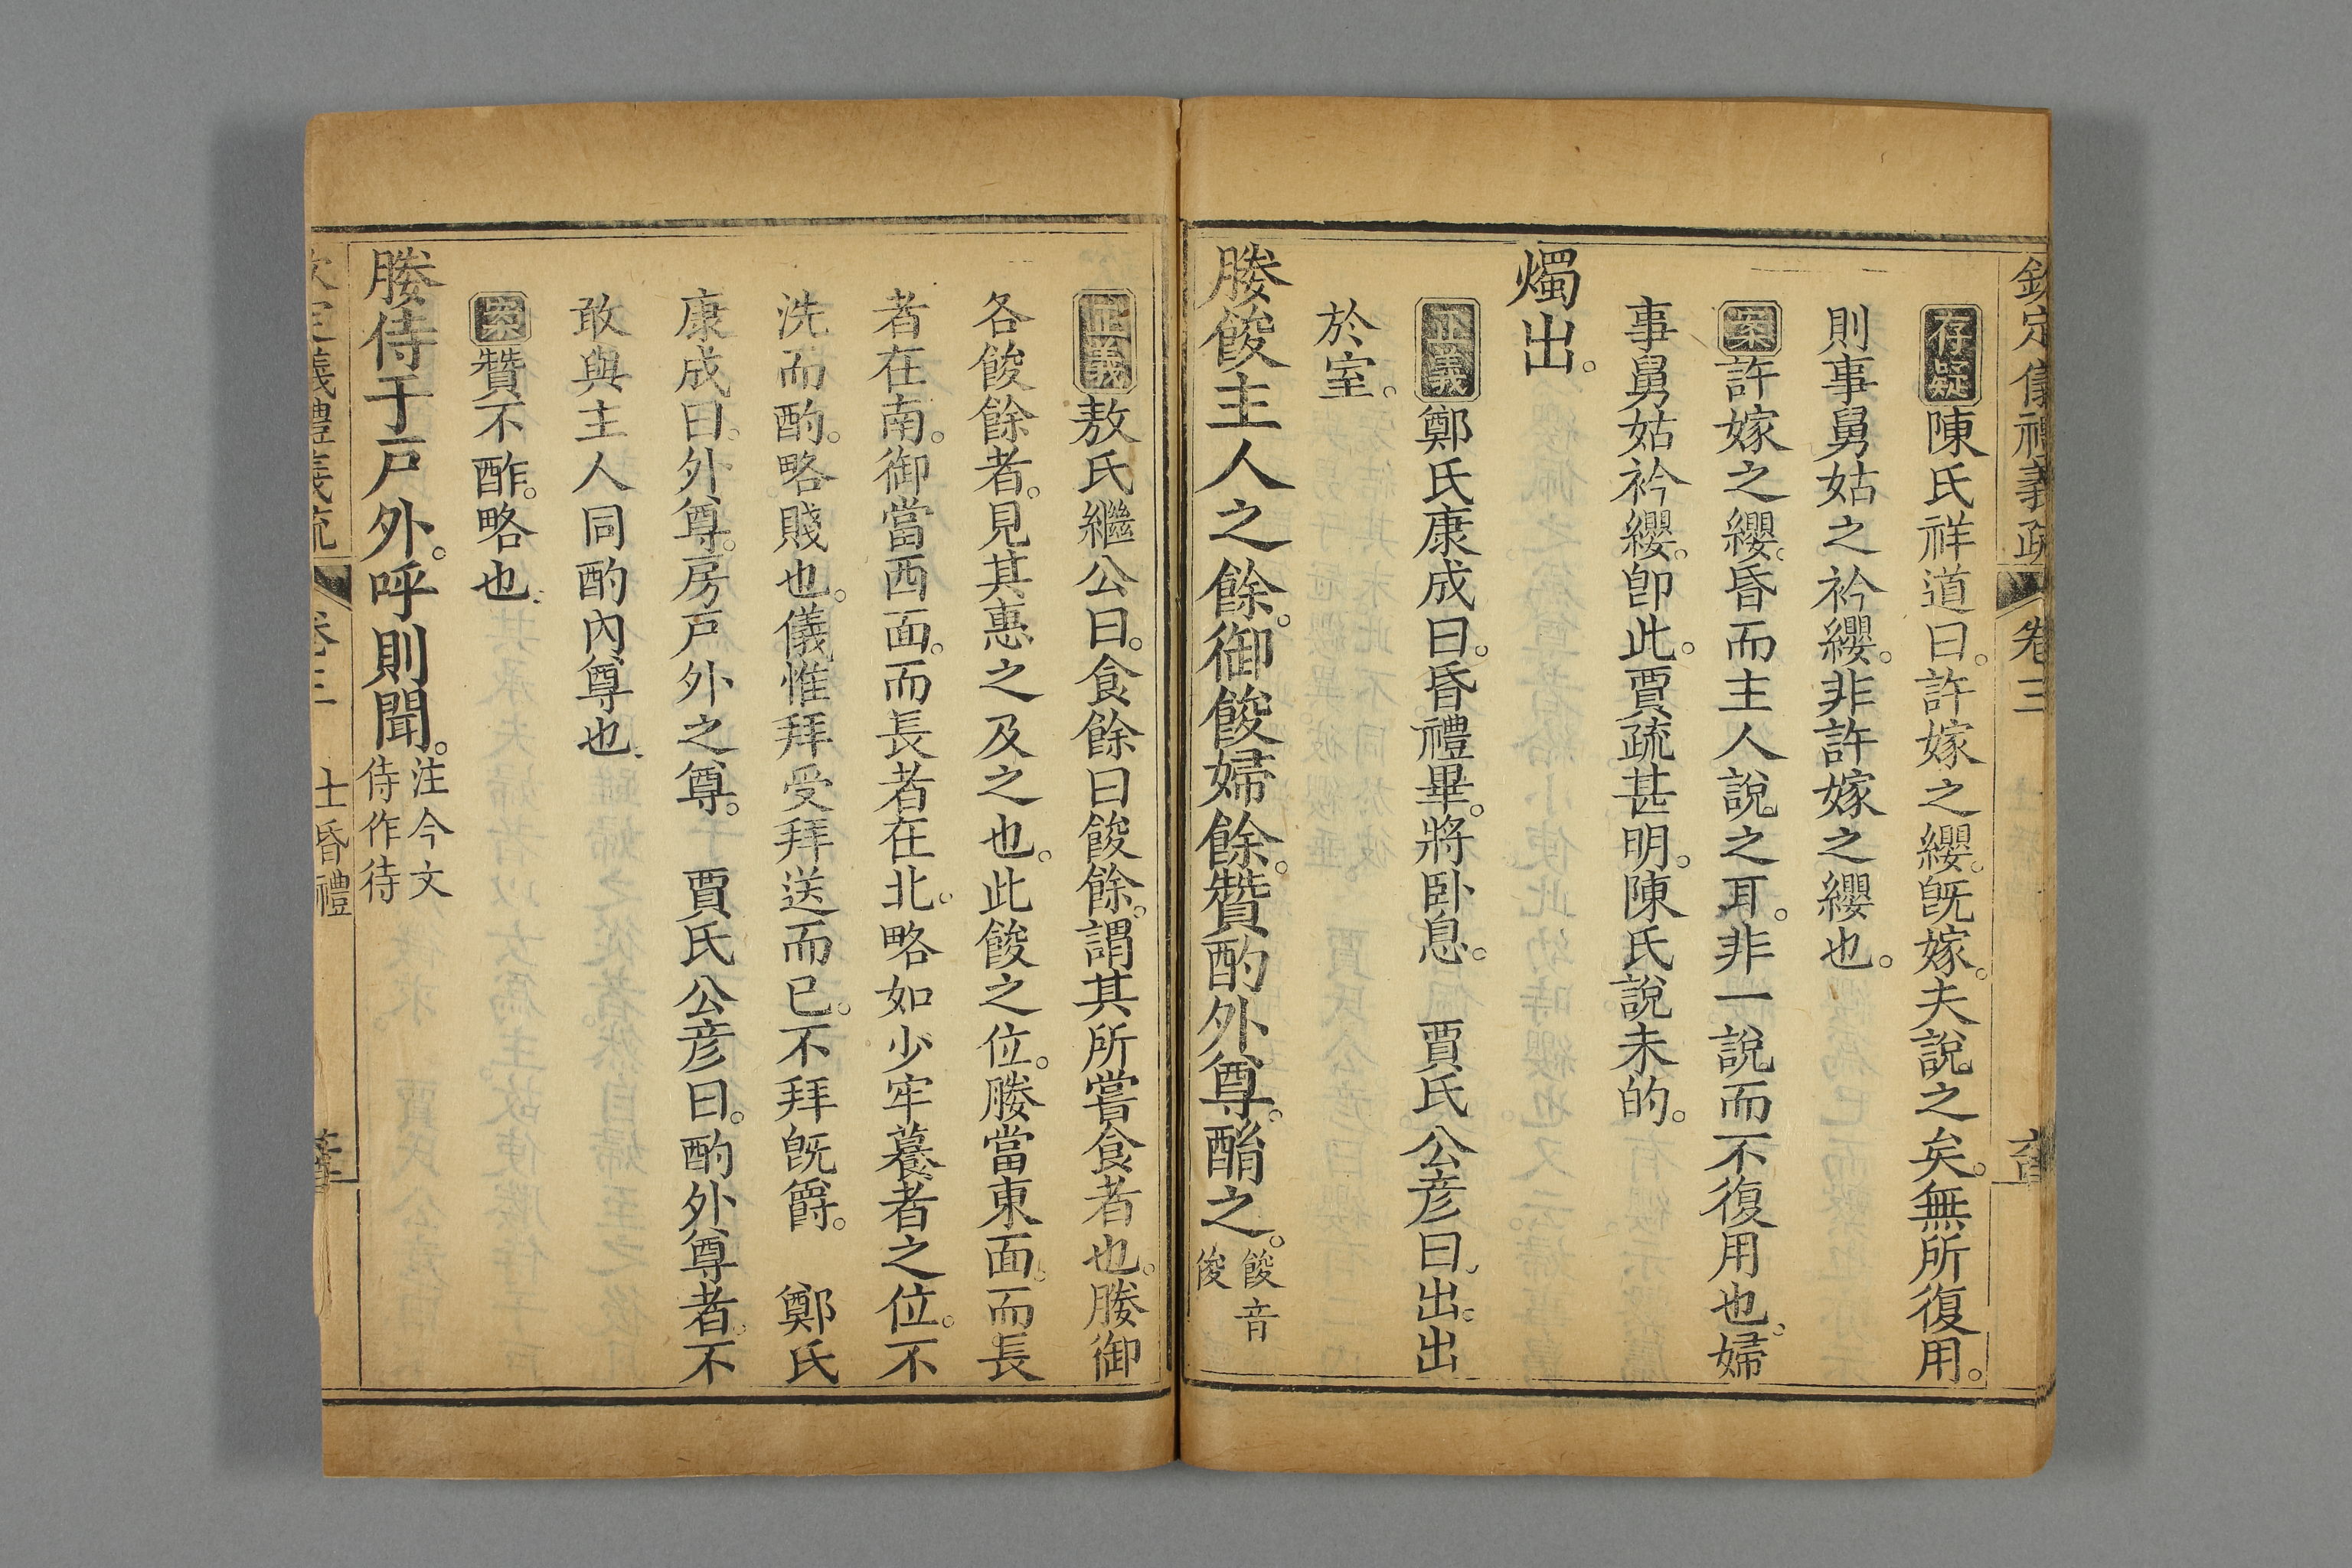 欽定儀禮義疏 卷三
存疑陳氏祥道曰。許嫁之纓。旣嫁。夫說之矣。無所復用。
則事舅姑之衿纓。非許嫁之纓也。
案許嫁之纓。昏而主人說之耳。非一說而不復用也。婦
事舅姑衿纓。卽此。賈疏甚明。陳氏說未的。
燭出。
正義鄭氏康成曰。昏禮畢。將卧息。 賈氏公彦曰。出。出
於室。
媵餕主人之餘。御餕婦餘。贊酌外尊。酳之。餕音
俊
正義敖氏繼公曰。食餘曰餕餘。謂其所嘗食者也。媵御
各餕餘者。見其惠之及之也。此餕之位。媵當東面。而長
者在南。御當西面。而長者在北。略如少牢養者之位。不
洗而酌。略賤也。儀惟拜受拜送而已。不拜旣爵。 鄭氏
康成曰。外尊。房戸外之尊。 賈氏公彦曰。酌外尊者。不
敢與主人同酌內尊也。
案贊不酢。略也。
媵侍于戸外。呼則聞。注今文
侍作待
欽定儀禮義疏 卷三 士昏禮